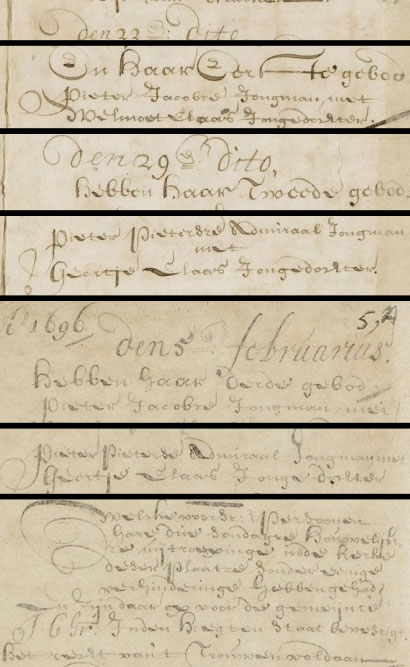 den 22 en dito
En haar Eerste gebod
Pieter Jacobse Jongman met
Welmoet Claas Jongedochter.
den 29 en Dito,
hebben haar Tweede gebod.
Pieter Pieterse Admiraal Jongman
met
Geertje Claas Jongedochter.
1696. 52
den 5 en februarius.
Hebben haar derde gebod
Pieter Jacobse Jongman, met
Pieter Pieterse Admiraal Jongman met
Geertje Claas Jonge dochter
Welke voorsz: Persoonen
haare drie sondagse houwelijk
se uijtroepinge inde kerke
deser plaatse sonder eenige
verhinderinge hebben gehad
En zijn daar op voor de gemeijnte
Inden Hegten staat bevestigt
het recht van't Trouwen voldaan